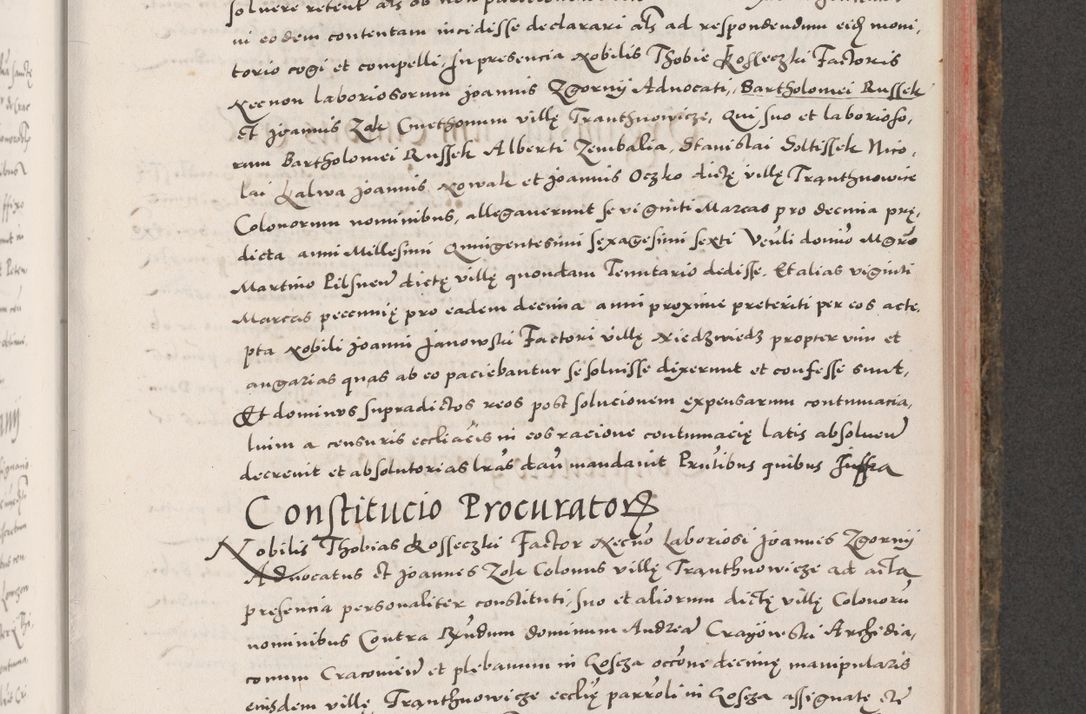 ni eodem contentam incidisse declarari als ad respondendum eidem moni,
torio cogi et compelli, In presencia Nobilis Thobie Kosseczki Factoris
Necnon laboriosorum Joannis Zgorny Advocati, Bartholomei Russek
Et Joannis Zok Cmethonum villę Tranthnowicze, Qui suo et laborioso,
rum Bartholomei Russek Alberti Zembalia, Stanislai Soltissek Nico,
lai Kalwa Joannis Nowak et Joannis Oczko dictę villę Tranthnowice
Colonorum nominibus, allegaverunt se viginti Marcas pro decima prę,
dicta anni Millesimi Quingentesimi sexagesimi sexti Venli domino Mgro
Martino Pilsnen dictę villę quondam Tenutario dedisse. Et alias viginti
Marcas pecunię pro eadem decima anni proxime preteriti per eos acce,
pta Nobili Joanni Janowski Factori villę Niedzwiedz propter vim et
angarias quas ab eo paciebantur se solvisse dixerunt et confesse sunt,
Et dominus supradictos reos post solucionem expensarum contumacia,
lium a censuris ecclīacīs in eos racione contumacię latis absolven
decrevit et absolutorias lras dari mandavit Prntibus quibus Supra
Constitucio Procurator
Nobilis Thobias Kosseczki Factor Necno Laboriosi Joannes Zgorny
Advocatus Et Joannes Zok Colonus villę Tranthnowicze ad acta
presencia personaliter constituti, suo et aliorum dictę villę Colonoru
nominibus Contra Rndum dominum Andrea Crayowski Archidia,
conum Cracovien et plebanum in Kosza occone decimę manipularis
eiusdem villę Tranthnowicze ecclię parroli in Kosza assignatę Et